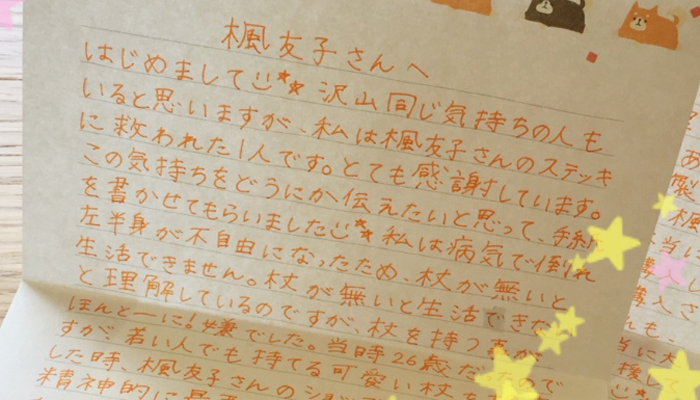 楓友子さんへ
はじめまして 沢山同じ気持ちの人も
いると思いますが、私は楓友子さんのステッキ
に救われた1人です。とても感謝しています。
この気持ちをどうにか伝えたいと思って、手紙
を書かせてもらいました 私は病気で倒れ
左半身が不自由になったため、杖が無いと
生活できません。杖が無いと生活できない
と理解しているのですが、杖を持つ事が
ほんとーに!嫌でした。当時26歳だったので
すが、若い人でも持てる可愛い杖を
した時、楓友子さんの
精神的に